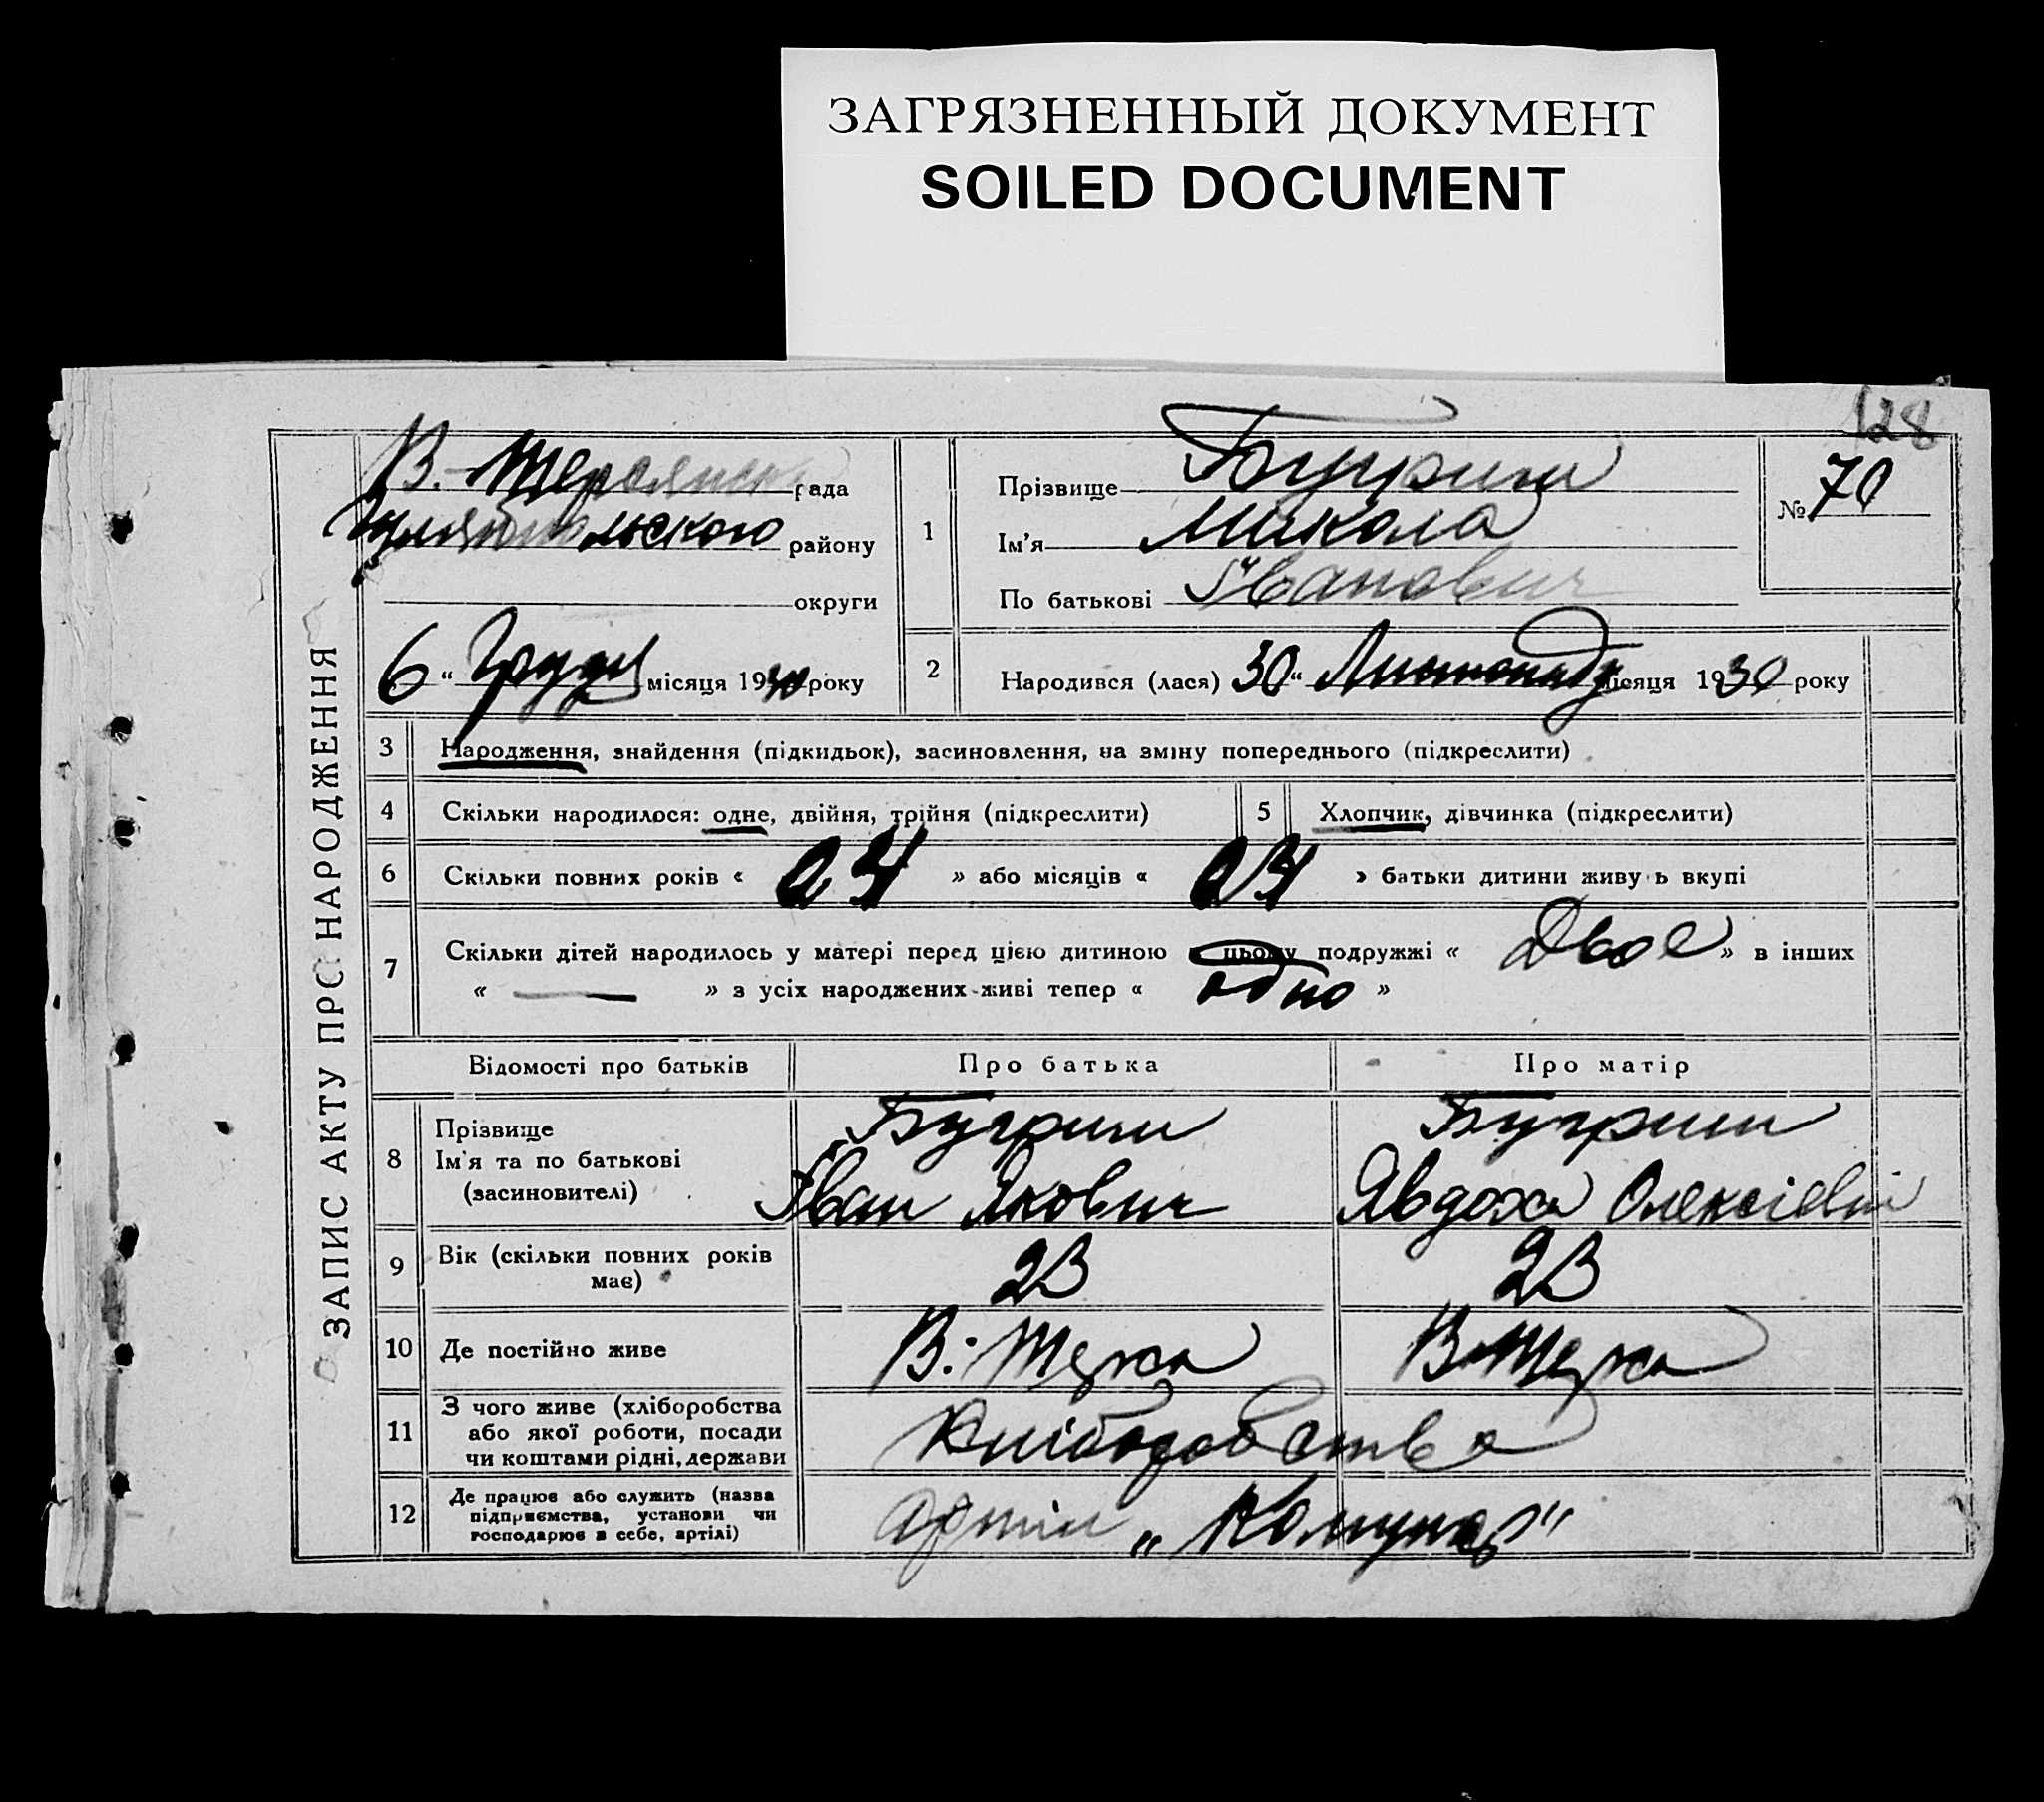 ЗАГРЯЗНЕННЫЙ ДОКУМЕНТ
SOILED DOCUMENT
128
ЗАПИС АКТУ ПРО НАРОДЖЕННЯ
рада
району
округи
6 “ Грудня місяця 1930 року
1
Прізвище Бугрим
Ім'я Микола
По батькові Іванович
№ 70
2 Народився (лася) 30 “ Листопаду місяця 1930 року
3 Народження, знайдення (підкидьок), засиновлення, на зміну попереднього (підкреслити)
4 Скільки народилося: одне, двійня, трійня (підкреслити)
5 Хлопчик, дівчинка (підкреслити)
6 Скільки повних років « » або місяців « » батьки дитини живуть вкупі
7 Скільки дітей народилось у матері перед цією дитиною в цьому подружжі « Двое » в інших
« — » з усіх народжених живі тепер « одно »
Відомості про батьків Про батька Про матір
8 Прізвище
Ім'я та по батькові
(засиновителі)
Бугрим
Іван Якович
Бугрим
Явдоха Олексіевн
9 Вік (скільки повних років
має)
23 23
10 Де постійно живе
В.-Терса В-Терса
11 З чого живе (хліборобства
або якої роботи, посади
чи коштами рідні, держави
Хліборобства
12 Де працює або служить (назва
підприємства, установи чи
господарює в себе, артілі)
Артіли „Комунар“